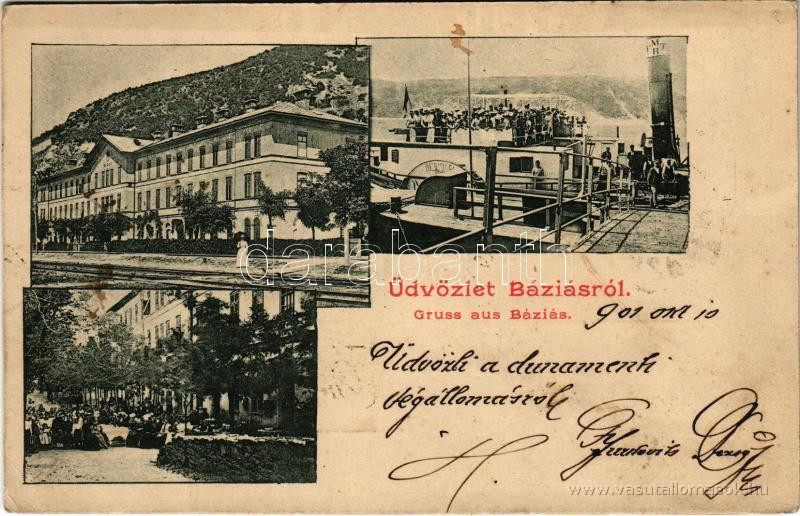 Üdvözlet Báziásról.
Gruss aus Báziás.
901 okt 10
Üdvözli a dunamenti
végállomásról
darabanth
www.vasutallomasok.hu